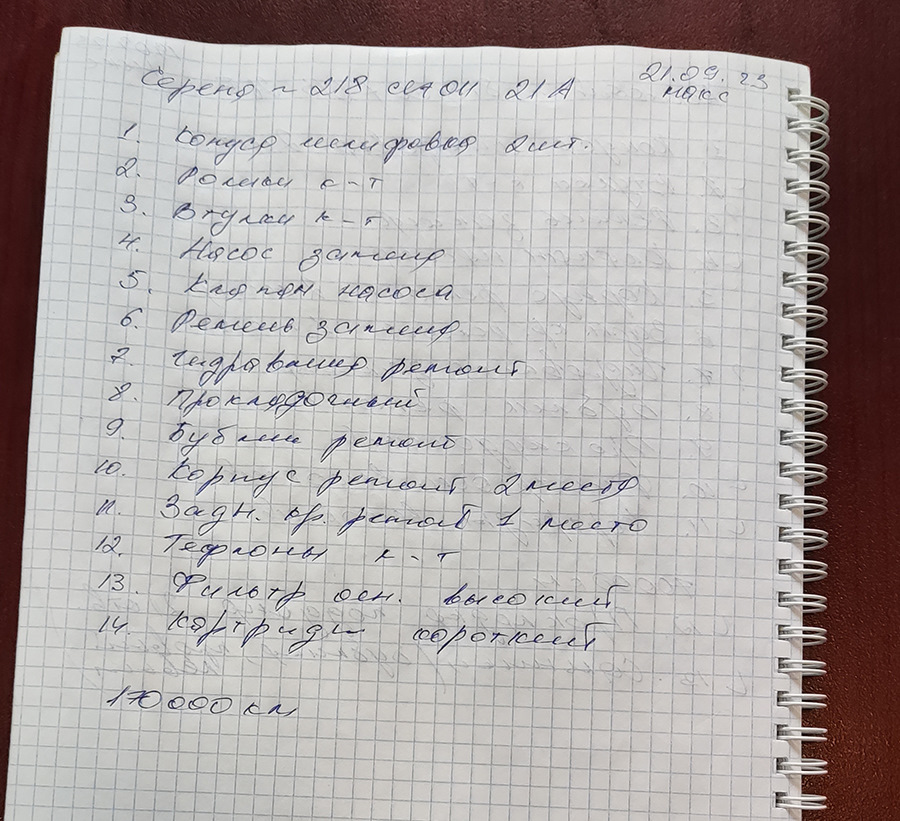 Серена ~ 218 21А
21.09.23
макс
1. Конуса шлифовка 2шт.
2. Ролики к-т
3. Втулки к-т
4. Насос замена
5. Клапан насоса
6. Ремень замена
7. Гидравлика ремонт
8. Прокладочный
9. Бублик ремонт
10. Корпус ремонт 2 места
11. Задн. кр. ремонт 1 место
12. Тефлоны к-т
13. Фильтр осн. высокий
14. Картридж короткий
170000 км